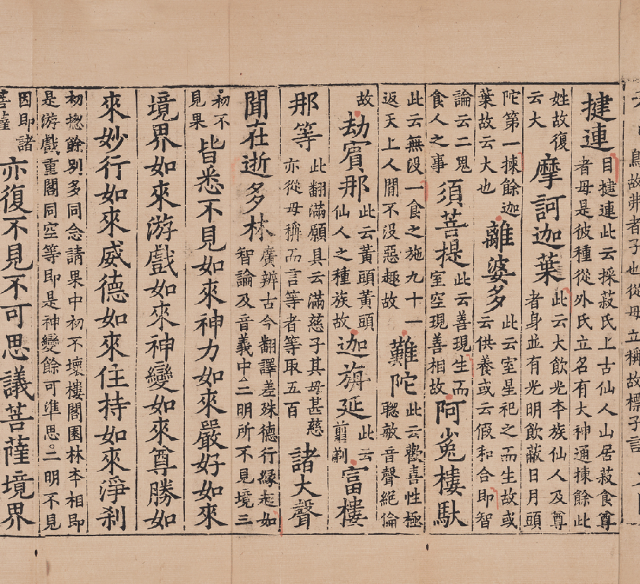 揵連目揵連此云採菽氏上古仙人山居菽食尊者母是彼種從外氏立名有大神通揀餘此
姓故復云大摩訶迦葉此云大飲光本族仙人及尊者身並有光明飲蔽日月頭
陀第一揀餘迦葉故云大也離婆多此云室星祀之而生故或云供養或云假和合即智
論云二鬼食人之事須菩提此云善現生而室空現善相故阿㝹樓馱
此云無一食之施九十一返天上人間不没惡趣故難陀此云歡喜性極聰敏音聲絕倫
故劫賓那此云黃頭黃頭仙人之種族故迦旃延此云翦剃富樓
那等此翻滿願具云滿慈子其母甚慈亦從母稱而言等者等取五百諸大聲
聞在逝多林廣辨古今翻譯差殊德行緣起如智論及音義中二明所不見境三
初不見果皆悉不見如來神力如來嚴好如來
境界如來游戲如來神變如來尊勝如
來妙行如來威德如來住持如來淨刹
初揔餘別多同念請果中初不壞樓閣園林本相即是游戲重閣同空等即是神變餘可准思二明不見
因即諸菩薩亦復不見不可思議菩薩境界